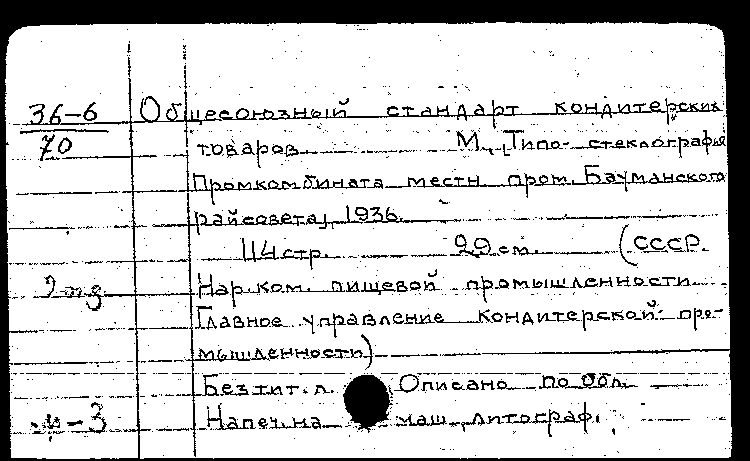 36-6 Общесоюзный стандарт кондитерских
70 товаров М., [Типо-стеклография
Промкомбината местн. пром. Бауманского
райсовета], 1936.
114 стр. 29 см. (СССР.
Нар. ком. пищевой промышленности.
Главное управление кондитерской про-
мышленности)
Без тит. л. Описано по обл.
Напеч. на маш., литограф.